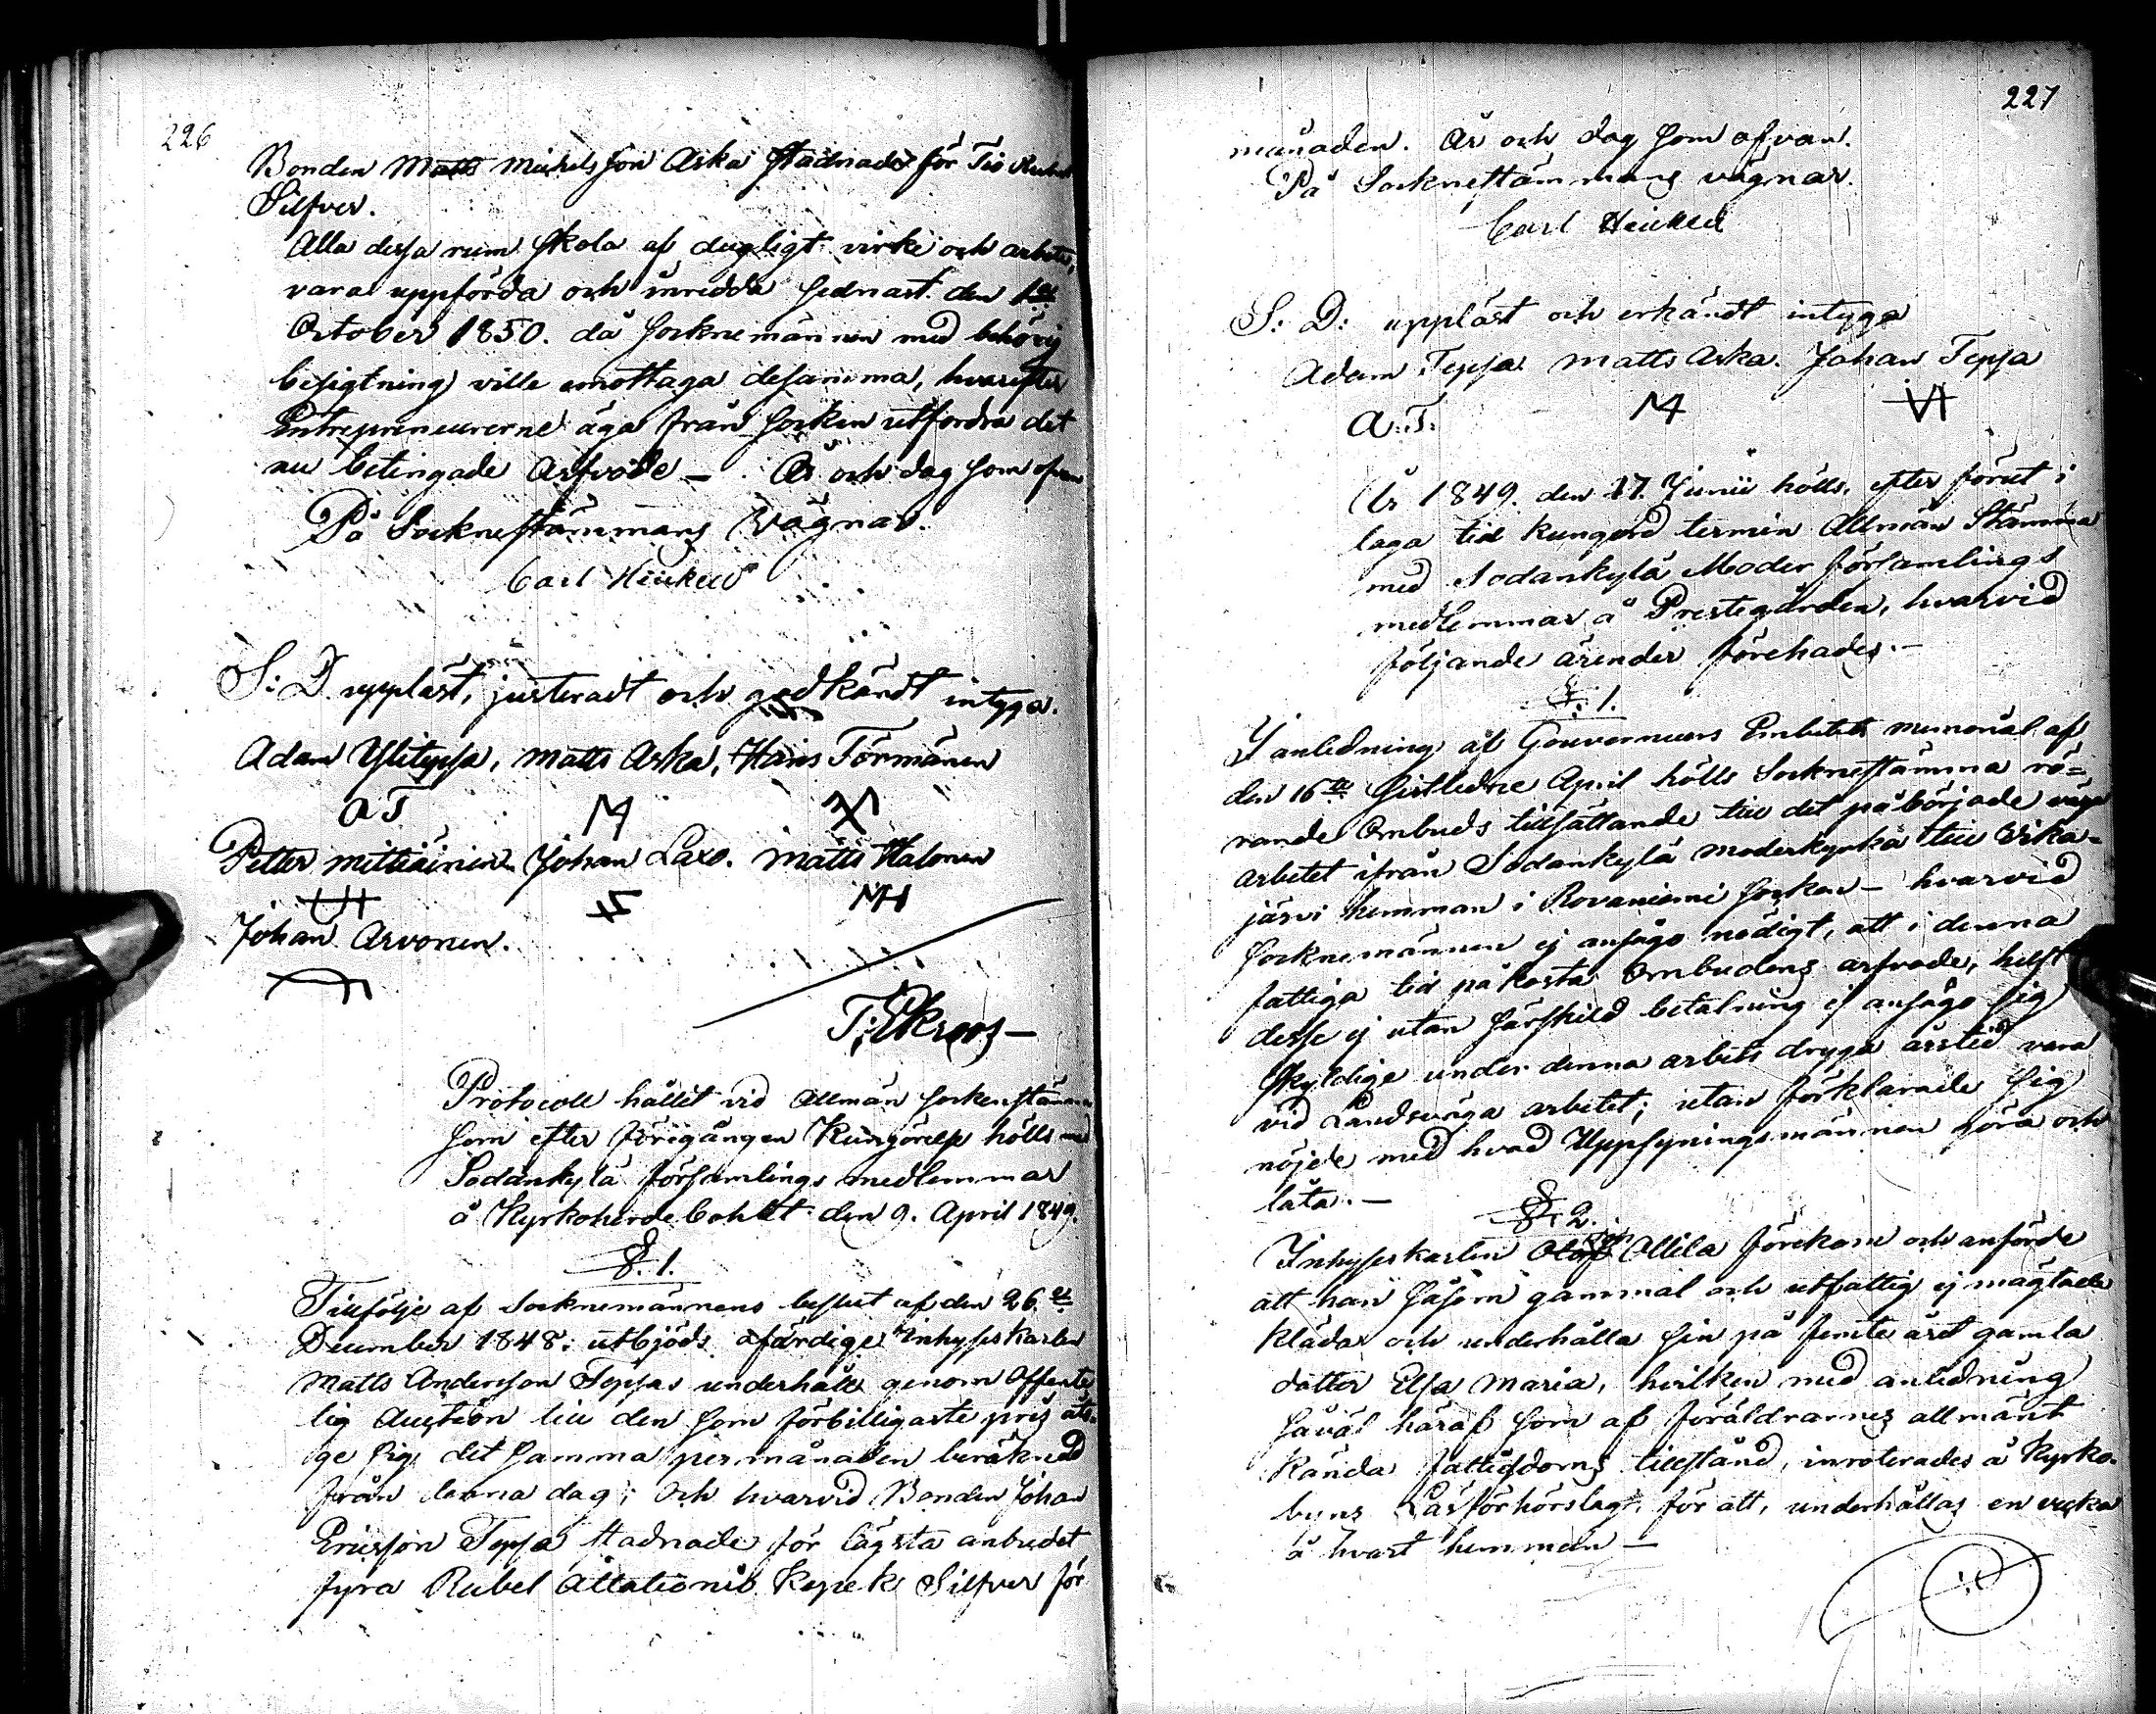 226
Bonden Matts Michelsson Aska stadnade för Tio Rubel
Silfver.
Alla dessa rum skola af dugligt virke och arbete,
vara uppförda och inredda sednast den 1ta
October 1850. då Socknemännen med behörig
besigtning ville emottaga desamma, hvarefter
Entrepreneurerne äga från Socken utfordra det
nu betingade Arfvode – År och dag som ofvan
På Sockneståmmans Vägnar.
Carl Heickell
S: D. uppläst, justeradt och godkändt intyga.
Adam Ylitepsa, Matts Aska, Hans Törmänen
AT M
Petter Mittiäinen Johan Laxo. Matts Halonen
MH
Johan Arvonen.
T. Ekroos –
Protocoll hållit vid Allmän Sockenstämma
som efter föregången Kungörelse hölls med
Sodankylä församlings medlemmar
å Kyrkoherde bohlet den 9. April 1849.
§. 1.
Tillfölje af Socknemännens beslut af den 26.te
December 1848: utbjöds ofärdige Inhyseskarlen
Matts Andersson Tepsas underhåll genom Offent-
lig Auction till den som för billigaste pris åta-
ge sig det samma per månaden beräknad
från denna dag; Och hvarvid Bonden Johan
Ericsson Tepsa stadnade för lägsta anbudet
fyra Rubel Åttationio Kopek Silfver för
227
månaden. År och dag som ofvan.
På Sockneståmmans vägnar.
Carl Heickell
S: D: uppläst och erkändt intyga
Adam Tepsa Matts Aska. Johan Tepsa
A.T. M
År 1849. den 17. Junii hölls, efter förut i
laga tid kungjord termin Allmän Stämma
med Sodankylä Moder församlings
medlemmar å Prestegården, hvarvid
följande ärender förehades. –
§. 1.
I anledning af Gouverneurs Embetets memorial af
den 16de sistledne April hölls Sockneståmma rö-
rande Ombuds tillsättande till det påbörjade väga
arbetet ifrån Sodankylä moderkyrka till Vika-
järvi hemman i Rovaniemi Socken – hvarvid
Socknemännen ej ansågo nödigt, att i denna
fattiga tid påkosta Ombudens arfvode, helst
desse ej utan särskild betalning ej ansågo sig
skyldige under denna arbets dryga årstid vara
vid Landsväga arbetet; utan förklarade sig
nöjde med hvad Uppsyningsmännen göra och
låta. –
§. 2.
Inhyseskarlen Olof Ollila förekom och anförde
att han såsom gammal och utfattig ej mägtade
kläda och underhålla sin på femte året gamla
dotter Elsa Maria, hvilken med anledning
såväl häraf som af föräldrarnes allmänt
kända fattigdoms tillstånd, inroterades å Kyrko-
byns Läsförhörslag, för att, underhållas en vecka
å hvart hemman –